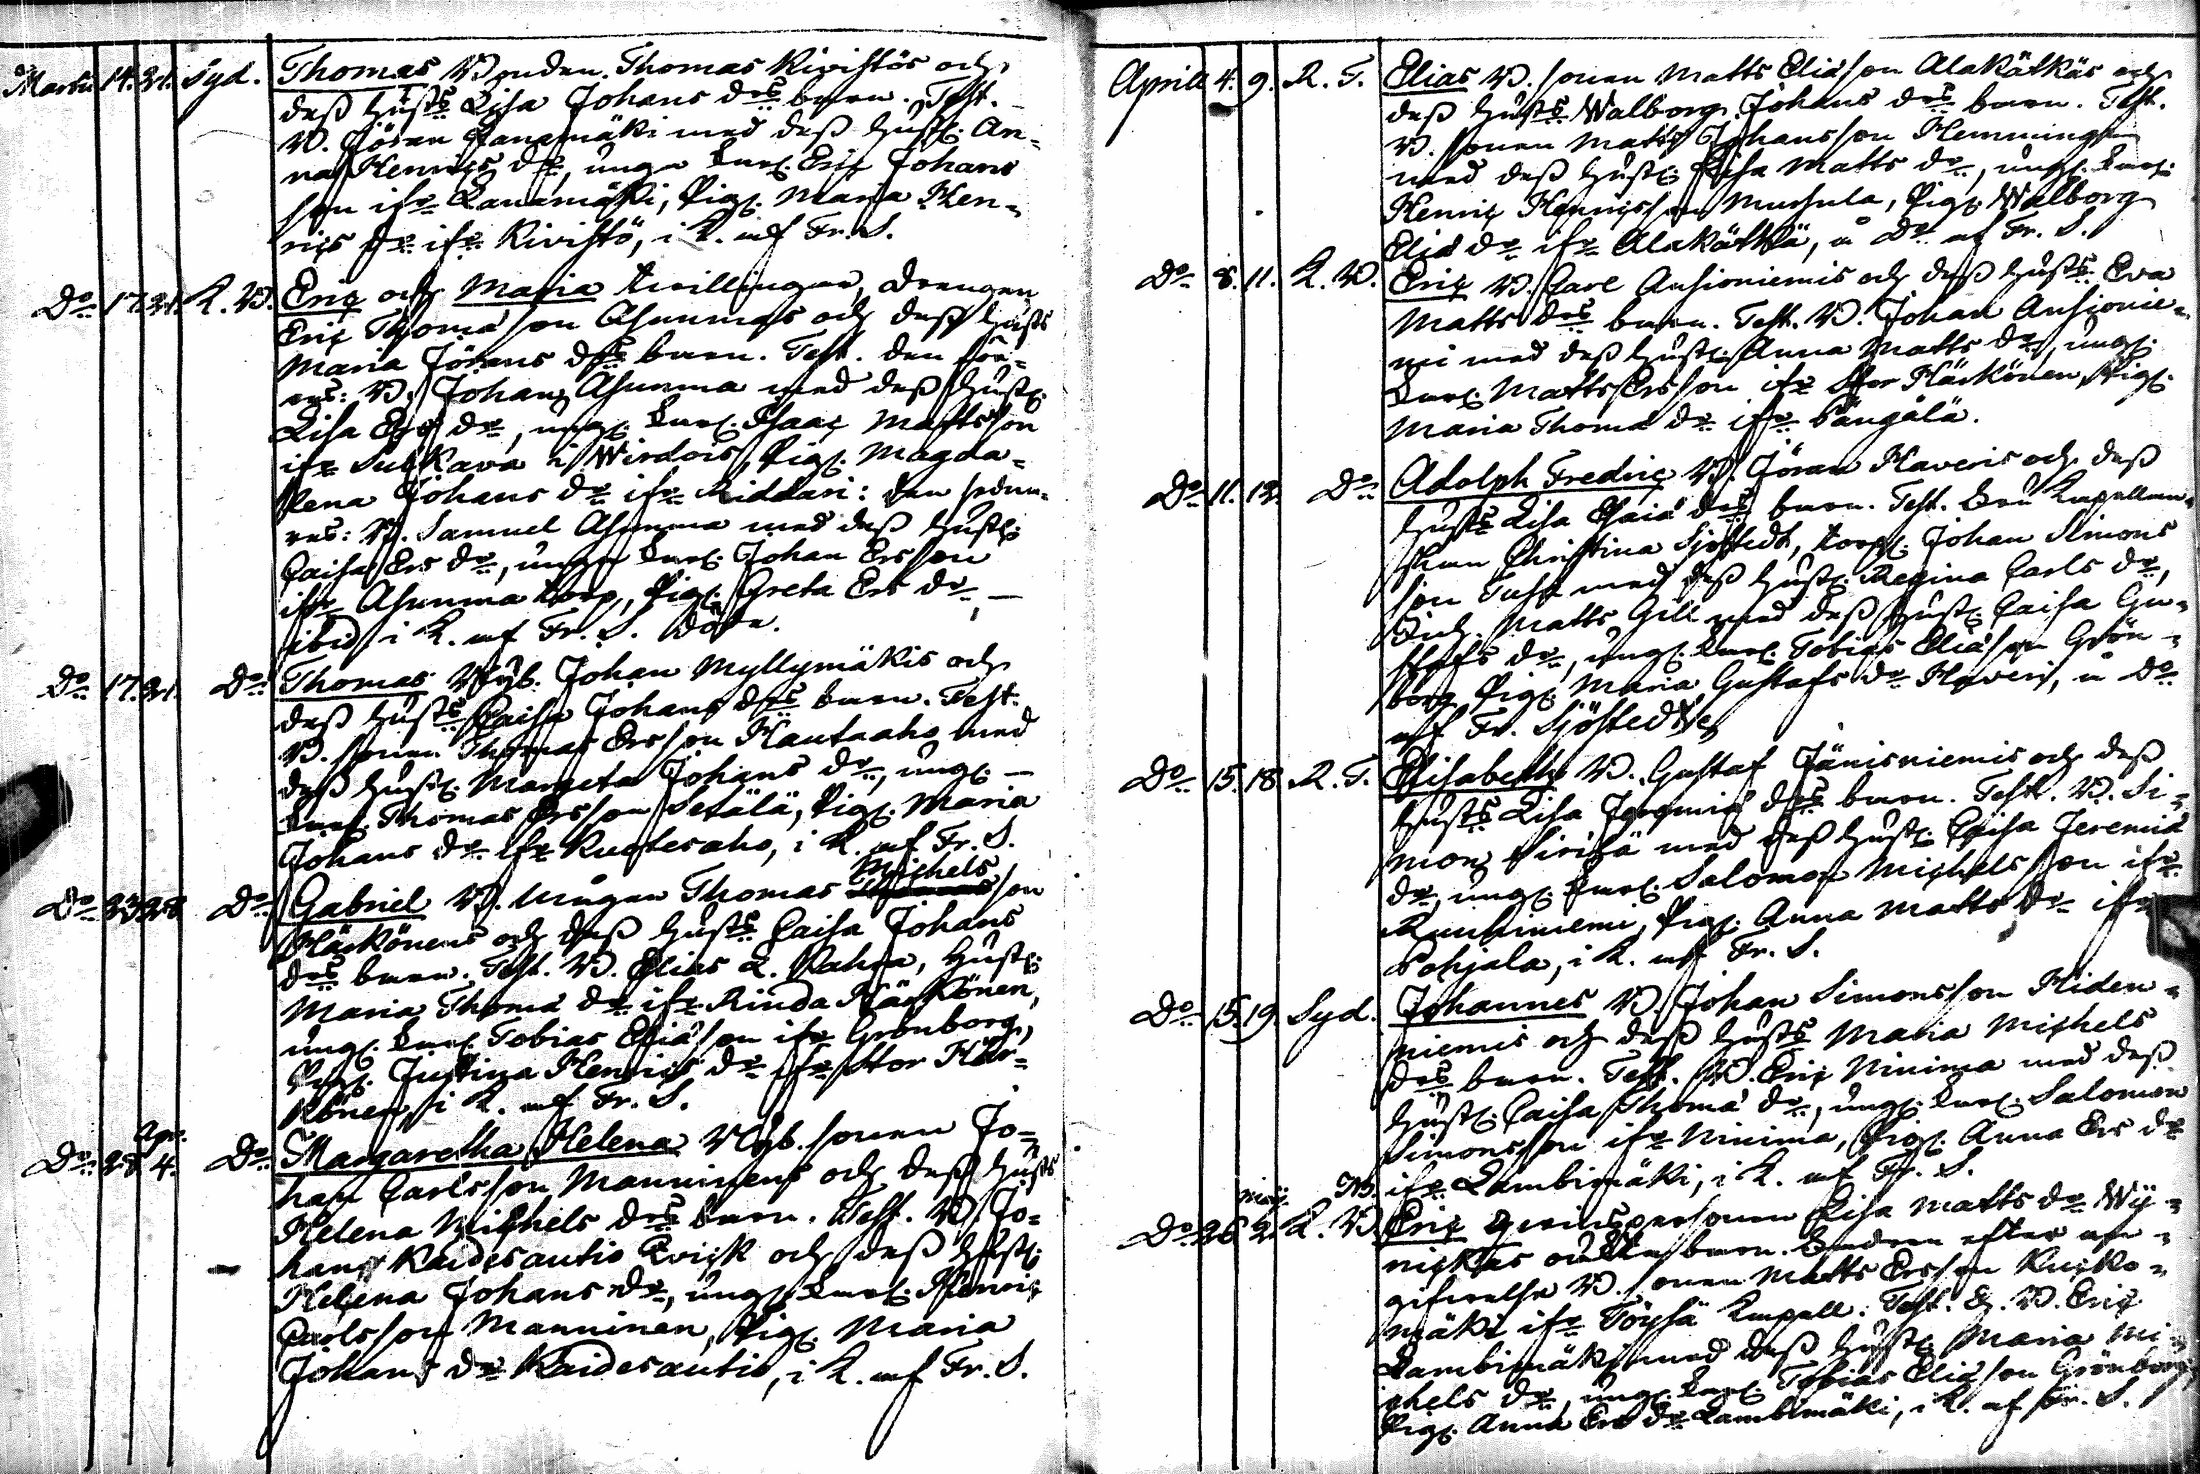 Martii 14. 21. Syd. Thomas Bonden Thomas Kivistös och
deß Hust:s Lisa Johans d:rs barn. Test.
B. Jöran med deß Hust: An-
na Henrics d:r, unge Karl: Eric Johans
son ifr: Lanamäki, Pig: Maria Hen-
rics d:r ifr: Kivistö, i K. af Fr. S.
D:o 17. 21. K. B. Eric och Maria twillingar, Drengen
Eric Thomæ son Asunmas och deß Hust:s
Maria Jörans d:rs barn. Test. den för-
res: B. Johan Asunma med deß Hust:
Lisa Ers d:r, ung: Karl: Isaac Mattsson
ifr: Sulkava i Wirdois, Pig: Magda-
lena Johans d:r ifr: Riddari: den sedna-
res: B. Samuel Asunma med deß Hust:
Caisa Ers d:r, unge Karl: Johan Ersson
ifr: Asunma torp, Pig: Greta Ers d:r
ibid i K. af Fr. S. Döda.
D:o 17. 21. D:o Thomas Nyb. Johan Myllymäkis och
deß Hust:s Caisa Johans d:rs barn. Test.
B. sonen Thomas Ersson Hautaaho med
deß Hust: Margeta Johans d:r, ung:
Karl: Thomas Ersson Setälä, Pig: Maria
Johans d:r ifr: Kuolesaho, i K. af Fr. S.
Michels
D:o 23 28 D:o Gabriel B. Mågen Thomas son
Härkönens och deß Hust:s Caisa Johans
d:rs barn. Test. B. Elias L. Rahra, Hust:
Maria Thomæ d:r ifr: Rinda Härkönen,
ung: Karl: Tobias Eliæ son ifr: Grönborg,
Pig: Justina Henrics d:r ifr: Stor Här-
könen, i K. af Fr. S.
Apr.
D:o 28 4. D:o Margaretha Helena Nyb. sonen Jo-
han Carlsson Manninens och deß Hust:s
Helena Michels d:rs barn. Test. B. Jo-
han Kaidesautio Qvick och deß Hust:
Helena Johans d:r, ung: Karl: Henric
Carlsson Manninen, Pig: Maria
Johans d:r Kaidesautio, i K. af Fr. S.
Aprill 4. 9. R. T. Elias B. sonen Matts Eliæ son Alakätkäs och
deß Hust:s Walborg Johans d:rs barn. Test.
B. sonen Matts Johansson Hemminge
med deß Hust: Lisa Matts d:r, ung: Karl:
Henric Henricsson Mursula, Pig: Walborg
Eliæ d:r ifr: Alakätkä, å D:o af Fr. S.
D:o 8. 11. K. B. Eric B. Carl Ansioniemis och deß Hust:s Eva
Matts d:rs barn. Test. B. Johan Ansionie-
mi med deß Hust: Anna Matts d:r, ung:
Karl: Matts Ersson ifr: Stor Härkönen, Pig:
Maria Thomæ d:r ifr: Pängälä.
D:o 11. 12. D:o Adolph Fredric B. Jöran Haveris och deß
Hust:s Lisa Esaiæ d:rs barn. Test. Fru Kapellan-
skan Christina Sjöstedt, Corpl: Johan Simons
son Tust med deß Hust: Regina Carls d:r,
Matts Gill med deß Hust: Caisa Gu-
stafs d:r, ung: Karl: Tobias Eliæ son Grön-
borg, Pig: Maria Gustafs d:r Haveri, å D:o
af Fr. Sjöstedt
D:o 15. 18. R. T. Elisabetha B. Gustaf Jänisniemis och deß
Hust:s Lisa Jeremiæ d:rs barn. Test. B. Si-
mon med deß Hust: Caisa Jeremiæ
d:r, ung: Karl: Salomon Michelsson ifr:
Rauhiniemi, Pig: Anna Matts d:r ifr:
Pohjala, i K. af Fr. S.
D:o 15. 19. Syd. Johannes B. Johan Simonsson Hiden-
niemis och deß Hust:s Maria Michels
d:rs barn. Test. B. Eric Ninima med deß
Hust: Caisa Thomæ d:r, ung: Karl: Salomon
Simonsson ifr: Ninima, Pig: Anna Ers d:r
ifr: Lambimäki, i K. af Fr. S.
Maij NB.
D:o 26 2. K. B. Eric Lisa Matts d:r Wy-
oäkta barn. Fadren efter an-
gifvelse B. sonen Matts Ersson Kuoko-
mäki ifr: Töysä Kapell: Test. B. Eric
Lambimäki med deß Hust: Maria Mi-
chels d:r, ung: Karl: Tobias Eliæ son Grönborg,
Pig: Anna Ers d:r Lambimäki, i K. af Fr. S.